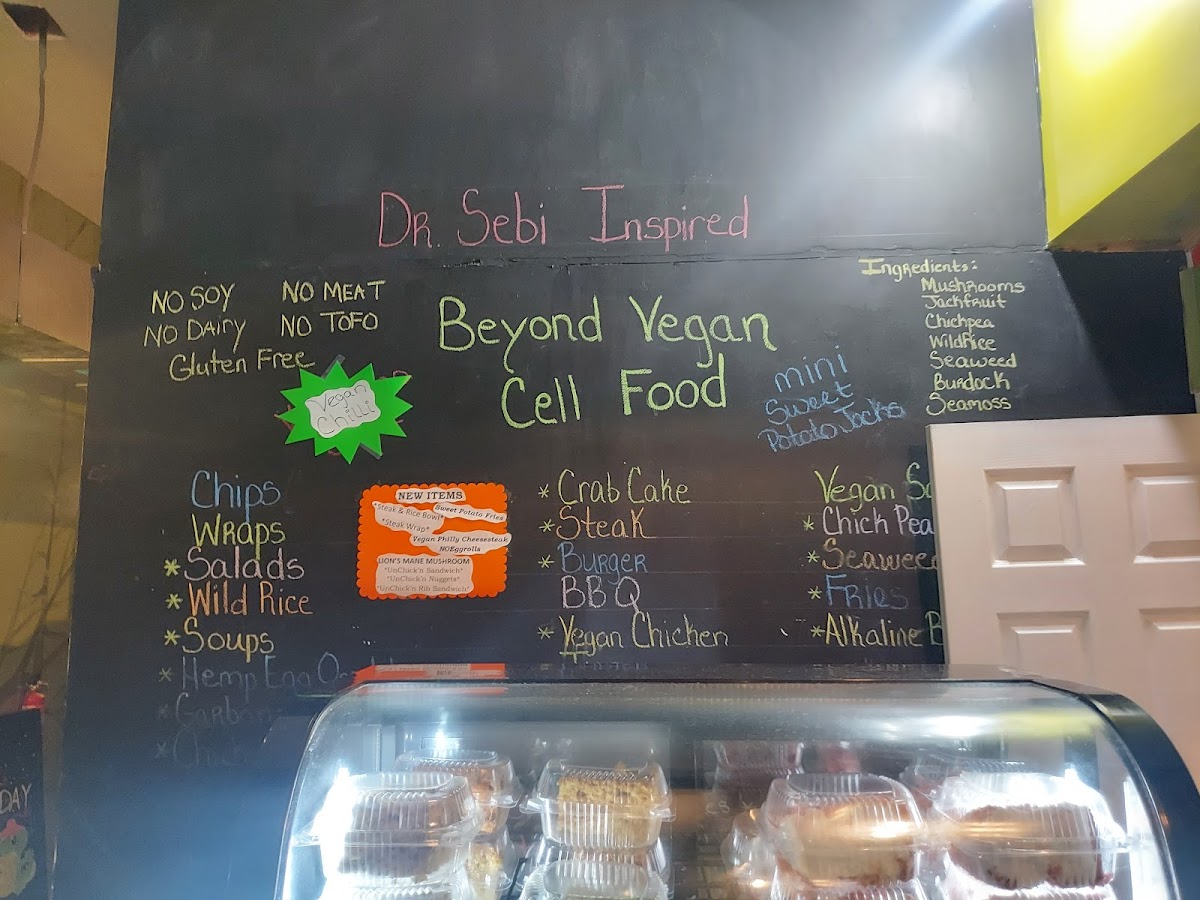 Dr. Sebi Inspired
NO SOY
NO MEAT
NO DAIRY
NO TOFO
Gluten Free
Vegan
Chilli
Beyond Vegan
Cell Food
mini
Sweet
Potato Jacks
Ingredients:
Mushrooms
Jackfruit
Chickpea
Wild Rice
Seaweed
Burdock
Seamoss
Chips
Wraps
*Salads
*Wild Rice
*Soups
*Hemp Egg
NEW ITEMS
*Steak & Rice Bowl*
Sweet Potato Fries
*Steak Wrap*
Vegan Philly Cheesesteak
NOEggrolls
LION'S MANE MUSHROOM
*UnChick'n Sandwich*
*UnChick'n Nuggets*
*UnChick'n Rib Sandwich*
*Crab Cake
*Steak
*Burger
BBQ
*Vegan Chicken
Vegan
*Chick Pea
*Seaweed
*Fries
*Alkaline
DAY